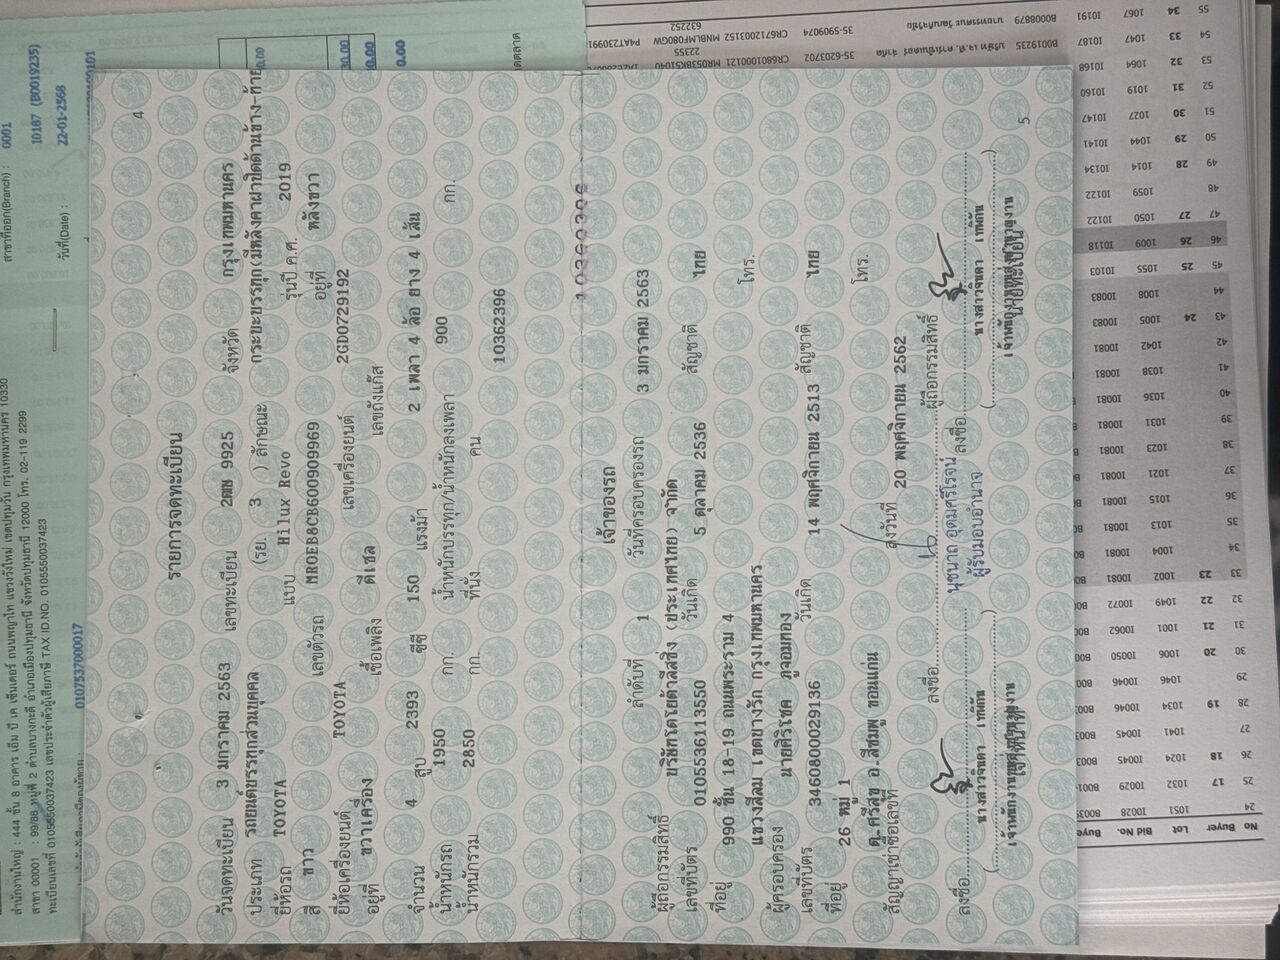 4
รายการจดทะเบียน
วันจดทะเบียน 3 มกราคม 2563 เลขทะเบียน 2ฒฆ 9925 จังหวัด กรุงเทพมหานคร
ประเภท รถยนต์บรรทุกส่วนบุคคล (รย. 3 ) ลักษณะ กระบะบรรทุก(มีหลังคาฝาปิดด้านข้าง-ท้าย
ยี่ห้อรถ TOYOTA แบบ Hilux Revo รุ่นปี ค.ศ. 2019
สี ขาว เลขตัวรถ MR0EB8CB600909969 อยู่ที่ หลังขวา
ยี่ห้อเครื่องยนต์ TOYOTA เลขเครื่องยนต์ 2GD0729192
อยู่ที่ ขวาเครื่อง เชื้อเพลิง ดีเซล เลขถังแก๊ส
จำนวน 4 สูบ 2393 ซีซี 150 แรงม้า 2 เพลา 4 ล้อ ยาง 4 เส้น
น้ำหนักรถ 1950 กก. น้ำหนักบรรทุก/น้ำหนักลงเพลา 900 กก.
น้ำหนักรวม 2850 กก. ที่นั่ง คน
10362396
เจ้าของรถ
ลำดับที่ 1 วันที่ครอบครองรถ 3 มกราคม 2563
ผู้ถือกรรมสิทธิ์ บริษัทโตโยต้าลีสซิ่ง (ประเทศไทย) จำกัด
เลขที่บัตร 0105536113550 วันเกิด 5 ตุลาคม 2536 สัญชาติ ไทย
ที่อยู่ 990 ชั้น 18-19 ถนนพระราม 4
แขวงสีลม เขตบางรัก กรุงเทพมหานคร โทร.
ผู้ครอบครอง นายศิริโชค ภูจอมทอง
เลขที่บัตร 3460800029136 วันเกิด 14 พฤศจิกายน 2513 สัญชาติ ไทย
ที่อยู่ 26 หมู่ 1
ต.ศรีสุข อ.สีชมพู ขอนแก่น โทร.
สัญญาเช่าซื้อเลขที่ ลงวันที่ 20 พฤศจิกายน 2562
ลงชื่อ ผู้ถือกรรมสิทธิ์
นุชนาถ อุดมศรีโรจน์
ผู้รับมอบอำนาจ
ลงชื่อ ลงชื่อ
นางสาวจินดา เทพกัน นางสาวจินดา เทพกัน
เจ้าหน้าที่ นายทะเบียน
5
สาขาที่ออก(Branch) : 0001
10187 (B0019235)
วันที่(Date) : 22-01-2568
สำนักงานใหญ่ : 444 ชั้น 8 อาคาร เอ็ม บี เค เซ็นเตอร์ ถนนพญาไท แขวงวังใหม่ เขตปทุมวัน กรุงเทพมหานคร 10330
สาขา 00001 : 99/88 หมู่ที่ 2 ตำบลบางกะดี อำเภอเมืองปทุมธานี จังหวัดปทุมธานี 12000 โทร. 02-119 2299
ทะเบียนเลขที่ 0105550037423 เลขประจำตัวผู้เสียภาษี TAX ID.NO. 0105550037423
0107537000017
No Buyer Lot Bid No. Buye
24 1051 10028
25 17 1032 10029
26 18 1024 10045
27 1041 10045
28 19 1034 10046
29 1046 10046
30 20 1006 10050
31 21 1001 10062
32 22 1049 10072
33 23 1002 10081
34 1004 10081
35 1013 10081
36 1015 10081
37 1021 10081
38 1023 10081
39 1031 10081
40 1036 10081
41 1038 10081
42 1042 10081
43 24 1005 10083
44 1008 10083
45 25 1055 10103
46 26 1009 10118
47 27 1050 10122
48 1059 10122
49 28 1014 10134
50 29 1044 10141
51 30 1027 10147
52 31 1019 10160
53 32 1064 10168
54 33 1047 10187 B0019235
55 34 1067 10191 B0008879
35-6203702 CR6801000121
35-5909074 CR6712003152